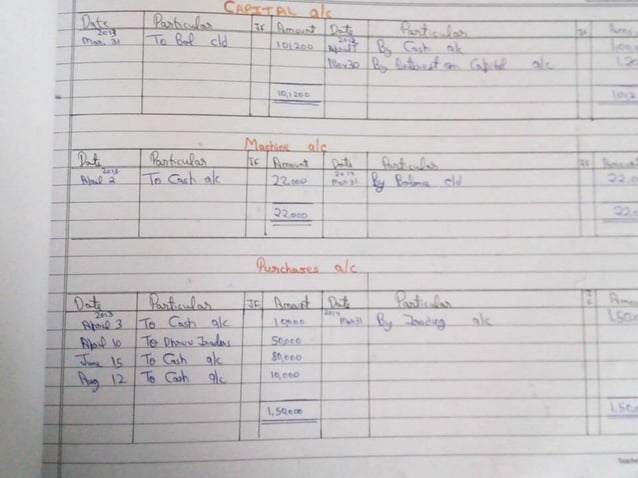 CAPITAL a/c
Date Particular JF Amount Date Particular JF
2013 Mar. 31 To Bal c/d 101200 April 1 By Cash a/c
Nov 30 By Interest on Capital a/c
10,1200
Machine a/c
Date Particular JF Amount Date Particular JF
2013 April 2 To Cash a/c 22,000 2014 Mar 31 By Balance c/d
22,000
Purchases a/c
Date Particular JF Amount Date Particular
2013 April 3 To Cash a/c 10,000 2014 Mar 31 By Trading a/c
April 10 To Dhruv Traders 50,000
June 15 To Cash a/c 80,000
Aug 12 To Cash a/c 10,000
1,50,000